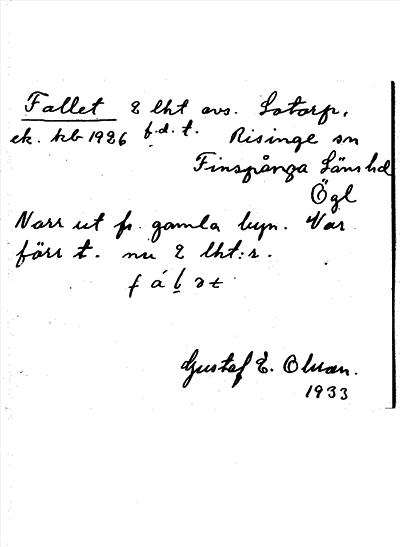 Fallet 2 lht avs. Lotorp,
ek. kb 1926 f.d. t. Risinge sn
Finspånga Läns hd
Ögl
Norr ut fr. gamla byn. Var
förr t. nu 2 lht:r.
Gustaf E. Olsson.
1933